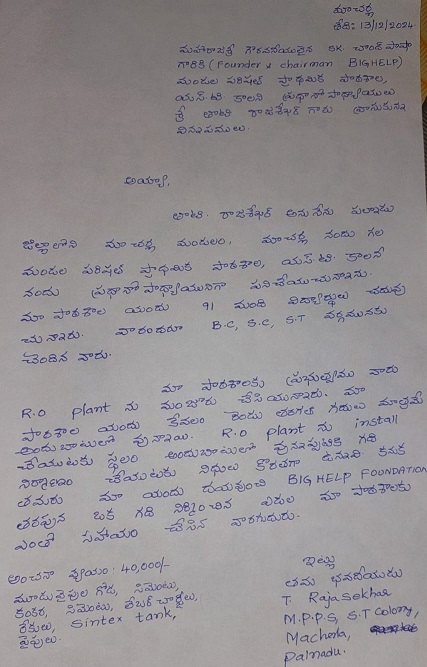 మాచర్ల
తేది: 13/12/2024.
మహారాజశ్రీ గౌరవనీయులైన SK. చాంద్ పాషా
గారికి (Founder & chairman BIGHELP)
మండల పరిషత్ ప్రాథమిక పాఠశాల,
యస్.టి. కాలని ప్రధానోపాధ్యాయులు
శ్రీ తాటి రాజశేఖర్ గారు వ్రాసుకున్న
విన్నపములు.
అయ్యా,
తాటి. రాజశేఖర్ అను నేను పల్నాడు
జిల్లాలోని మాచర్ల మండలం, మాచర్ల నందు గల
మండల పరిషత్ ప్రాథమిక పాఠశాల, యస్.టి. కాలని
నందు ప్రధానోపాధ్యాయునిగా పనిచేయుచున్నాను.
మా పాఠశాల యందు 91 మంది విద్యార్థులు చదువు
చున్నారు. వారందరూ B.C, S.C, S.T వర్గమునకు
చెందిన వారు.
మా పాఠశాలకు ప్రభుత్వము వారు
R.O plant ను మంజూరు చేసియున్నారు. మా
పాఠశాల యందు కేవలం రెండు తరగతి గదులు మాత్రమే
అందుబాటులో వున్నాయి. R.O plant ను install
చేయుటకు స్థలం అందుబాటులో వున్నప్పటికి గది
నిర్మాణం చేయుటకు నిధులు కొరతగా ఉన్నవి కనుక
తమరు మా యందు దయవుంచి BIG HELP FOUNDATION
తరపున ఒక గది నిర్మించిన ఎడల మా పాఠశాలకు
ఎంతో సహాయం చేసిన వారగుదురు.
అంచనా వ్యయం: 40,000/-
మూడు వైపుల గోడ, సిమెంటు,
కంకర, సిమెంటు, లేబర్ చార్జీలు,
రేకులు, Sintex tank,
పైపులు.
ఇట్లు
తమ భవదీయుడు
T. Rajasekhar
M.P.P.S, S.T Colony,
Macherla,
Palnadu.